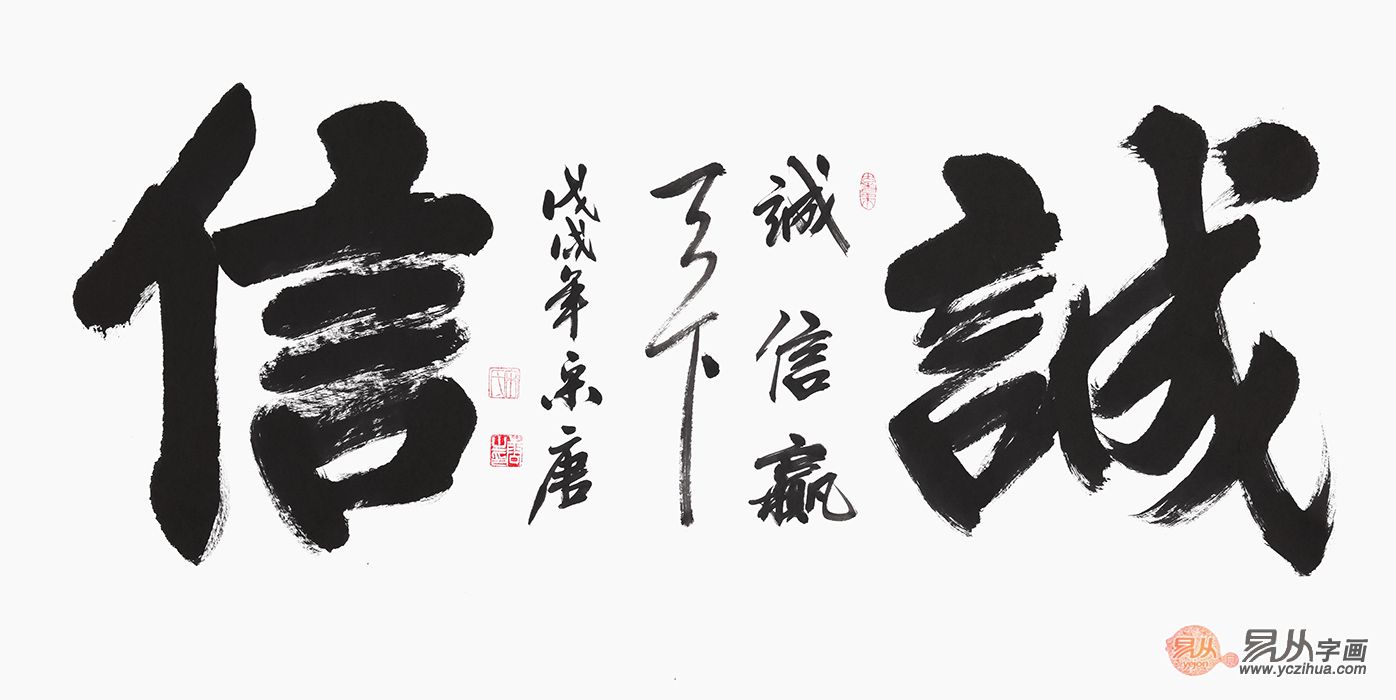 誠信
誠信贏
天下
戊戌年宋唐
易从
易从字画
www.yczihua.com